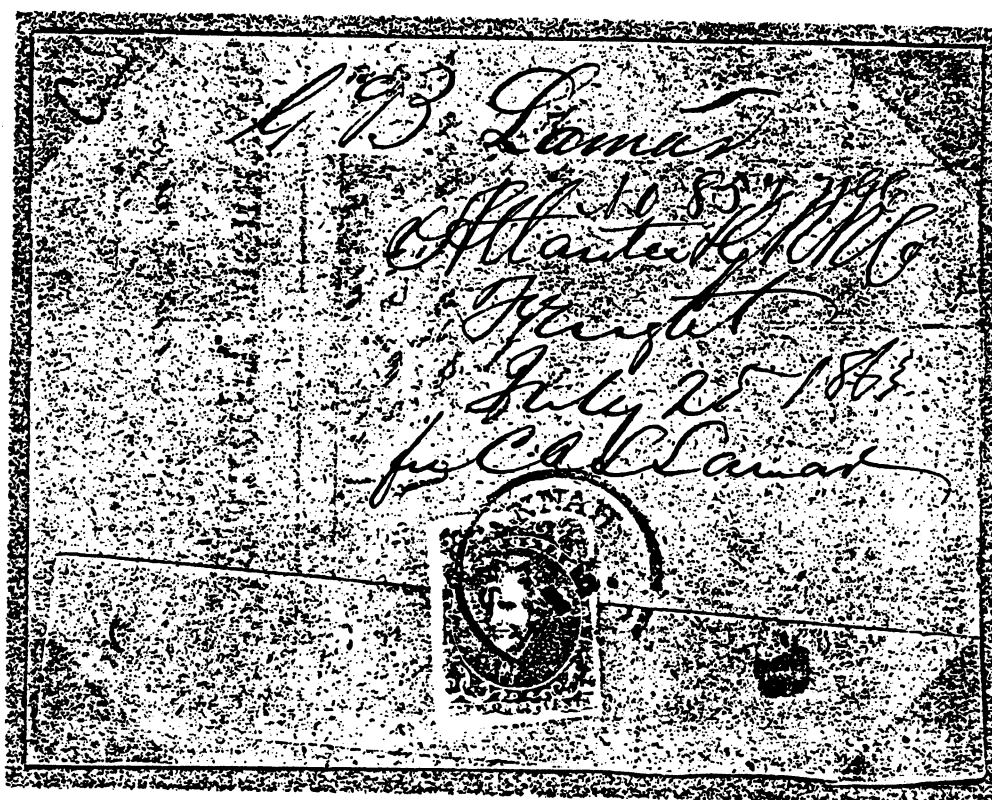 G B Lamar
No 857
Atlantic & G RR Co
Freight
July 25 1863
for C A L Lamar
NNAH